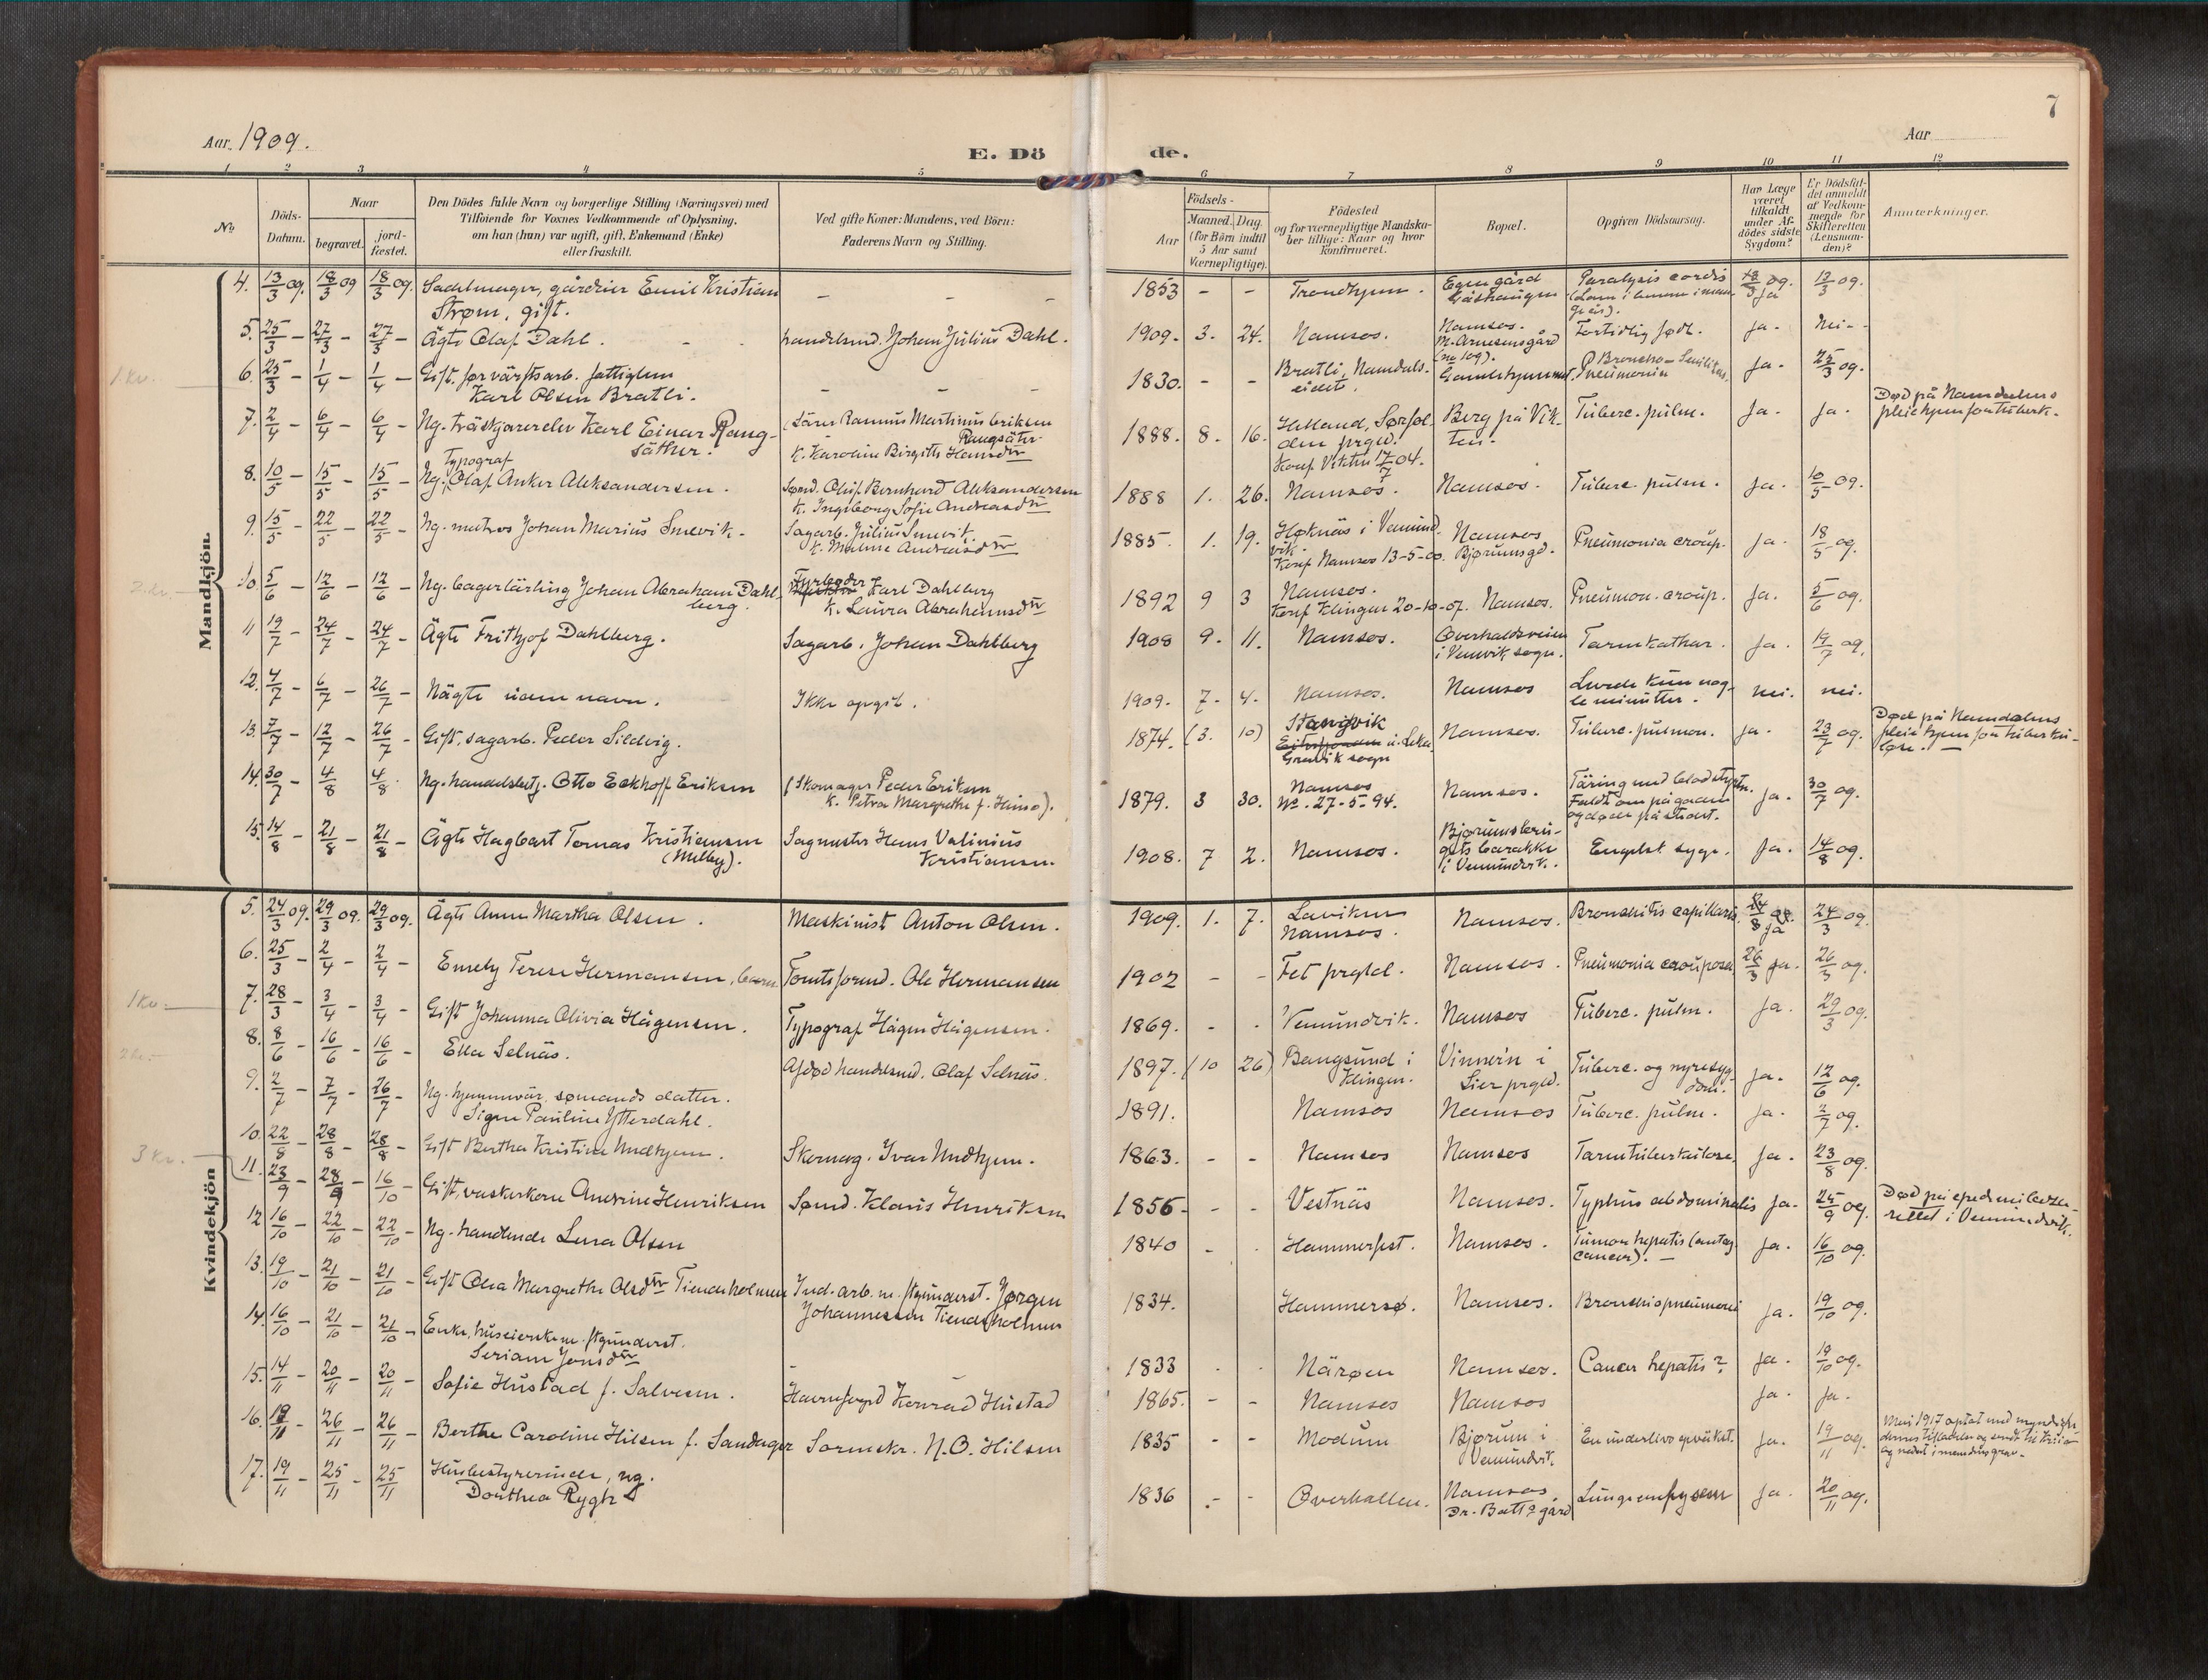 7
Aar 1909.
E. Dö
de.
Aar
1 2 3 4 5 6 7 8 9 10 11 12
No
Döds-Datum.
Naar
begravet.
jord-fæstet.
Den Dödes fulde Navn og borgerlige Stilling (Næringsvei) med
Tilföiende for Voxnes Vedkommende af Oplysning,
om han (hun) var ugift, gift, Enkemand (Enke)
eller fraskilt.
Ved gifte Koner: Mandens, ved Börn:
Faderens Navn og Stilling.
Födsels-
Aar
Maaned. Dag.
(for Börn indtil
5 Aar samt
Værnepligtige).
Födested
og for værnepligtige Mandska-
ber tillige: Naar og hvor
konfirmeret.
Bopæl.
Opgiven Dödsaarsag.
Har Læge
været
tilkaldt
under Af-
dödes sidste
Sygdom?
Er Dödsfal-
det anmeldt
af Vedkom-
mende for
Skifteretten
(Lensman-
den)?
Anmærkninger.
Mandkjön.
4. 13/3 09. 18/3 09 18/3 09. Sadelmager, gårdeier Emil Kristian
Strøm, gift. - - - 1853 - - Trondhjem. Egen gård
Gåshaugen Paralysis cordis ja 13/3 09.
5. 25/3 - 27/3 - 27/3 - Ägte Olaf Dahl. handelsmd. Johan Julius Dahl. 1909. 3. 24. Namsos. Namsos.
M. Arnesensgård
(no 109). Fortidlig født. ja. nei-
6. 25/3 - 1/4 - 1/4 - Gift, før värftsarb. fattiglem
Karl Olsen Bratli. - - 1830. - - Bratli, Namdals-
eidet. Gamlehjemmet. Broncho-
Pneumonia Ja. 25/3 09.
7. 2/4 - 6/4 - 6/4 - Ug. träskjærerelev Karl Einar Rang-
säther. Rasmus Martinus Eriksen
Rangsäter
K. Karoline Birgitte Hansdtr 1888. 8. 16. Helland, Sørfol-
den prgd.
Konf Vikten 17/7 04. Berg på Vik-
ten. Tuberc. pulm. Ja. ja. Død på Namdalens
pleiehjem for tuberk.
8. 10/5 - 15/5 - 15/5 - Typograf
Ug. Olaf Anker Aleksandersen. Sømd. Oluf Bernhard Aleksandersen
K. Ingeborg Sofie Andreasdtr 1888 1. 26. Namsos. Namsos. Tuberc. pulm. Ja. 10/5 09.
9. 15/5 - 22/5 - 22/5 - Ug. matros Johan Marius Smevik. Sagarb. Julius Smevik
K. Maline Andreasdtr 1885. 1. 19. Høknäs i Vemund-
vik.
Konf Namsos 13-5-00. Namsos
Bjørumsgd. Pneumonia croup. ja. 18/5 09.
10. 5/6 - 12/6 - 12/6 - Ug. bagerlärling Johan Abraham Dahl-
berg. Fyrbøder
Karl Dahlberg
K. Laura Abrahamsdtr 1892 9 3 Namsos.
Konf Klingen 20-10-07. Namsos. Pneumon. croup. Ja. 5/6 09.
11 19/7 - 24/7 - 24/7 - Ägte Frithjof Dahlberg. Sagarb. Johan Dahlberg 1908 9. 11. Namsos. Overhaldsveien
i Vemvik sogn. Tarmkathar. Ja. 19/7 09.
12. 4/7 - 6/7 - 26/7 - Uägte uden navn. Ikke opgit. 1909. 7. 4. Namsos. Namsos Levede kun nog-
le minutter. nei. nei.
13. 7/7 - 12/7 - 26/7 - Gift, sagarb. Peder Sildvig. 1874. (3. 10) Stangvik
u. Leka
Gravik sogn Namsos. Tuberc. pulmon. ja. 23/7 09. Død på Namdalens
pleiehjem for tuberku-
løse.
14. 30/7 - 4/8 4/8. Ug. handelsbetj. Otto Eckhoff Eriksen (Skomager Peder Eriksen
K. Petra Margrethe f. Heimo). 1879. 3 30. Namsos
No. 27-5-94. Namsos. Täring med blodstyrtn.
Faldt om på gaden
og døde på stedet. ja. 30/7 09.
15. 14/8 - 21/8 - 21/8 - Ägte Hagbart Tomas Kristiansen
(Melby). Sagmester Hans Valinius
Kristiansen. 1908. 7 2. Namsos. barakke
i Vemundvik. Engelsk syge. Ja. 14/8 09.
Kvindekjön
5. 24/3 09. 29/3 09. 29/3 09. Ägte Anna Martha Olsen. Maskinist Anton Olsen. 1909. 1. 7. Laviken
Namsos. Namsos. Bronchitis capillaris. ja 24/3 09.
6. 25/3 - 2/4 - 2/4 - Emely Terese Hermansen, barn Tomtsformd. Ole Hermansen 1902 - - Fet prgld. Namsos. Pneumonia crouposa 26/3 ja. 26/3 09.
1 kv.
7. 28/3 3/4 - 3/4 - Gift Johanna Olivia Hågensen. Typograf Hågen Hågensen. 1869. - - Vemundvik. Namsos Tuberc. pulm. Ja 29/3 09.
8. 8/6 - 16/6 - 16/6 - Ella Selnäs. Afdød handelsmd. Olaf Selnäs. 1897. (10 26) Bangsund i
Klingen. Vinnern i
Lier prgd. Tuberc. og nyresyg-
dom. Ja. 12/6 09.
9. 2/7 - 7/7 - 26/7 - Ug. hjemmevär. sømands datter.
Signe Pauline Ytterdahl. 1891. Namsos Namsos Tuberc. pulm. Ja. 2/7 09.
10. 22/8 - 28/8 - 28/8 - Gift Bertha Kristine Mudhjem. Skomag. Ivar Mudhjem. 1863. - - Namsos Namsos Tarmtuberkulose. Ja. 23/8 09.
3 kv.
11. 23/9 - 28/9 - 16/10 - Gift, vaskerkone Andrine Henriksen Sømd. Klaus Henriksen 1856 - - Vestnäs Namsos. Typhus abdominalis Ja. 25/9 09. Død på epedemilaza-
rettet i Vemundvik.
12 16/10 - 22/10 - 22/10 - Ug. handlende Lena Olsen 1840 - Hammerfest. Namsos. Tumor hepatis (antag.
cancer). Ja. 16/10 09.
13. 19/10 - 21/10 - 21/10 - Gift Olea Margrethe Olsdtr Tiendeholmen Ind. arb. m. ftgunderst. Jørgen
Johannessen Tiendeholmen 1834. Hammersø. Namsos. Bronchiopneumoni ja. 19/10 09.
14. 16/10 - 21/10 - 21/10 - Enke, huseierske m. ftgunderst.
Seriam Jonsdtr - 1833 Närøen Namsos. Cancer hepatis? Ja. 19/10 09.
15. 14/11 - 20/11 - 20/11 - Sofie Hustad f. Salvesen. Havnefogd Konrad Hustad 1865. - - Namsos Namsos Ja. Ja.
16. 19/11 - 26/11 - 26/11 - Berthe Caroline Hilsen f. Sandager Sorenskr. N.O. Hilsen 1835 - - Modum Bjørum i
Vemundvik. En underlivssvulst. Ja. 19/11 09. Mai 1917 optat med myndighe-
dernes tilladelse og sendt til Kri.a
og nedsat i mandens grav.
17. 19/11 - 25/11 - 25/11 Husbestyrerinde, ug.
Dorthea Rygh 1836 - - Overhallen. Namsos.
gård Lungeemfysem Ja. 20/11 09.